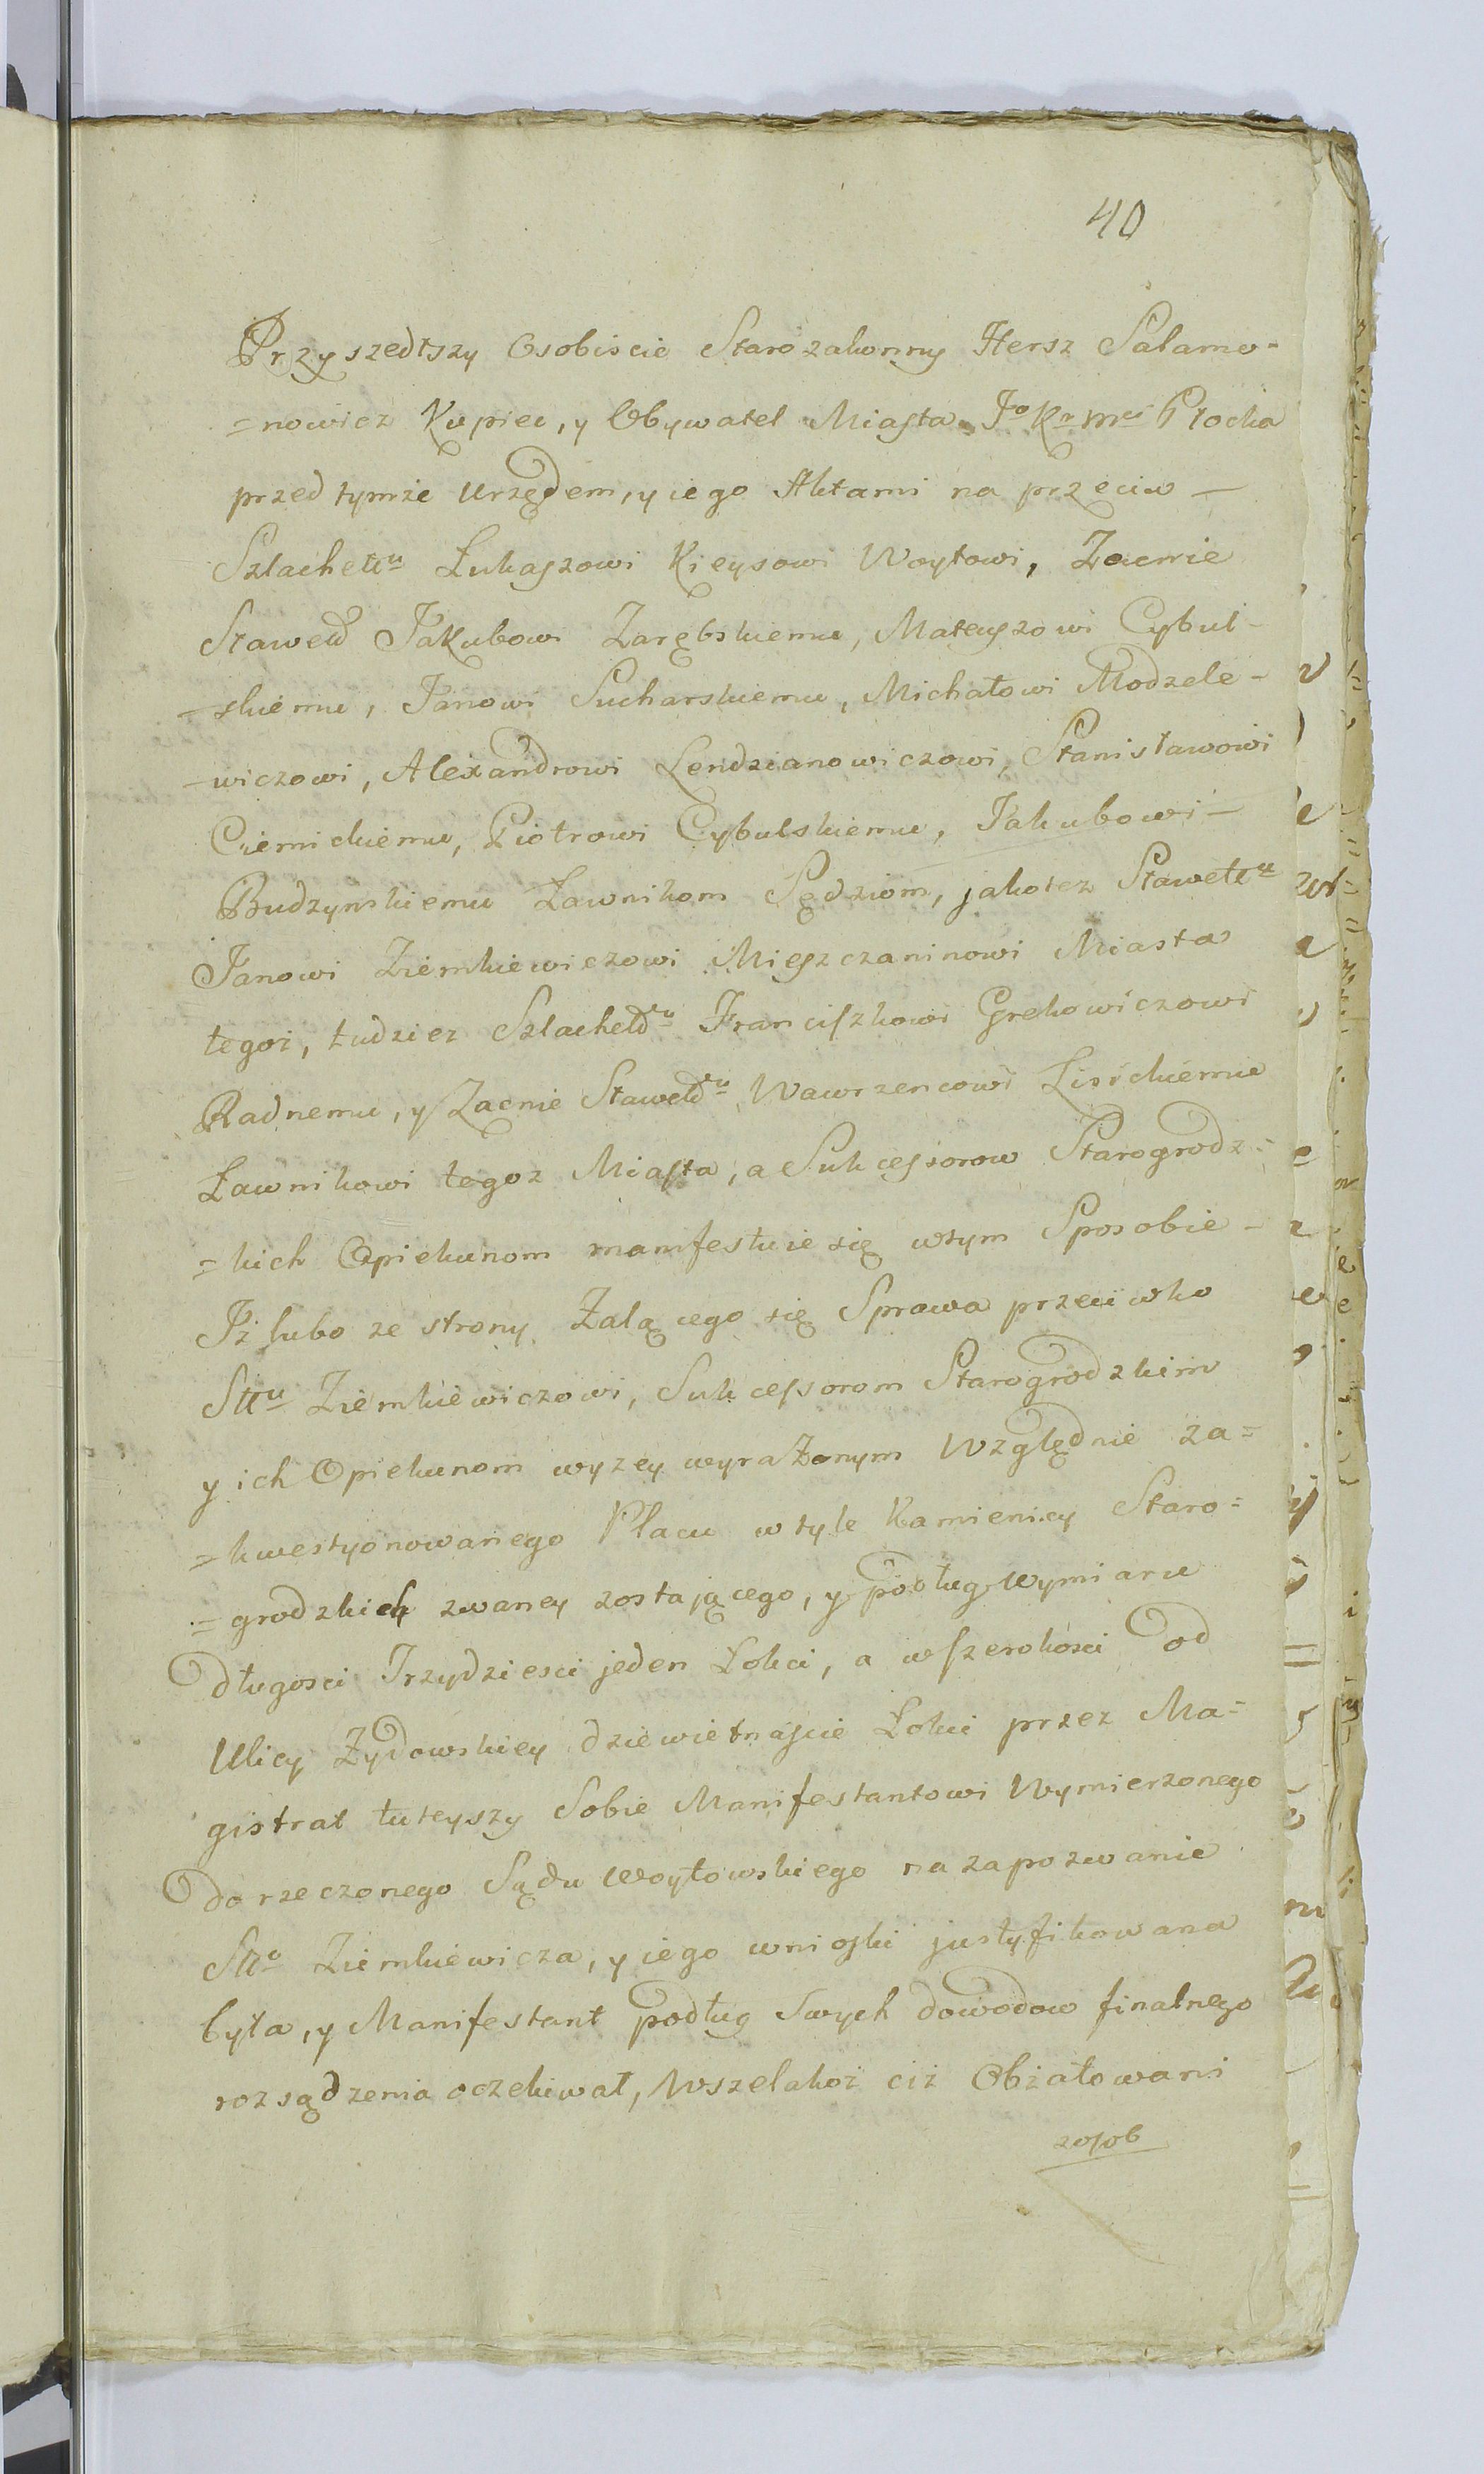 40
Przyszedłszy Osobiscie Starozakonny Hersz Salamo=
=nowicz Kupiec, y Obywatel Miasta Jo Kr Mci Płocka
przed tymże Urzędem, y iego Aktami na przeciw —
Szlachettu Łukaszowi Kieysowi Woytowi, Zacnie
Sławetd Jakubowi Zarębskiemu, Mateuszowi Cybul-
-skiemu, Janowi Sucharskiemu, Michałowi Modzele-
-wiczowi, Alexandrowi Lendzianowiczowi, Stanisławowi
Ciemickiemu, Piotrowi Cybulskiemu, Jakubowi —
Budzynskiemu Ławnikom Sędziom, jakotez Sławettu
Janowi Ziemkiewiczowi Mieszczaninowi Miasta
tegoż, tudziez Szlachetdu Franciszkowi Grekowiczowi
Radnemu, y Zacnie Sławetdu Wawrzencowi Lisickiemu
Ławnikowi tegoz Miasta, a Sukcessorow Starogrodz=
=kich Opiekunom manifestuie się wtym Sposobie —
Iż lubo ze strony Żalącego się Sprawa przeciwko
Sttu Ziemkiewiczowi, Sukcessorom Starogrodzkim
y ich Opiekunom wyzey wyrażonym Względnie za=
=kwestyonowanego Placu w tyle Kamienicy Staro=
=grodzkich zwaney zostającego, y podług Wymiaru
długosci Trzydziesci jeden Łokci, a wszerokosci od
Ulicy Żydowskiey dziewietnascie Łokci przez Ma=
gistrat tuteyszy Sobie Manifestantowi Wymierzonego
do rzeczonego Sądu Woytowskiego na zapozwanie
Stto Ziemkiewicza, y iego wnioski justyfikowana
była, y Manifestant podług Swych dowodow finalnego
rozsądzenia oczekiwał, Wszelakoż ciż Obżałowani
zosob